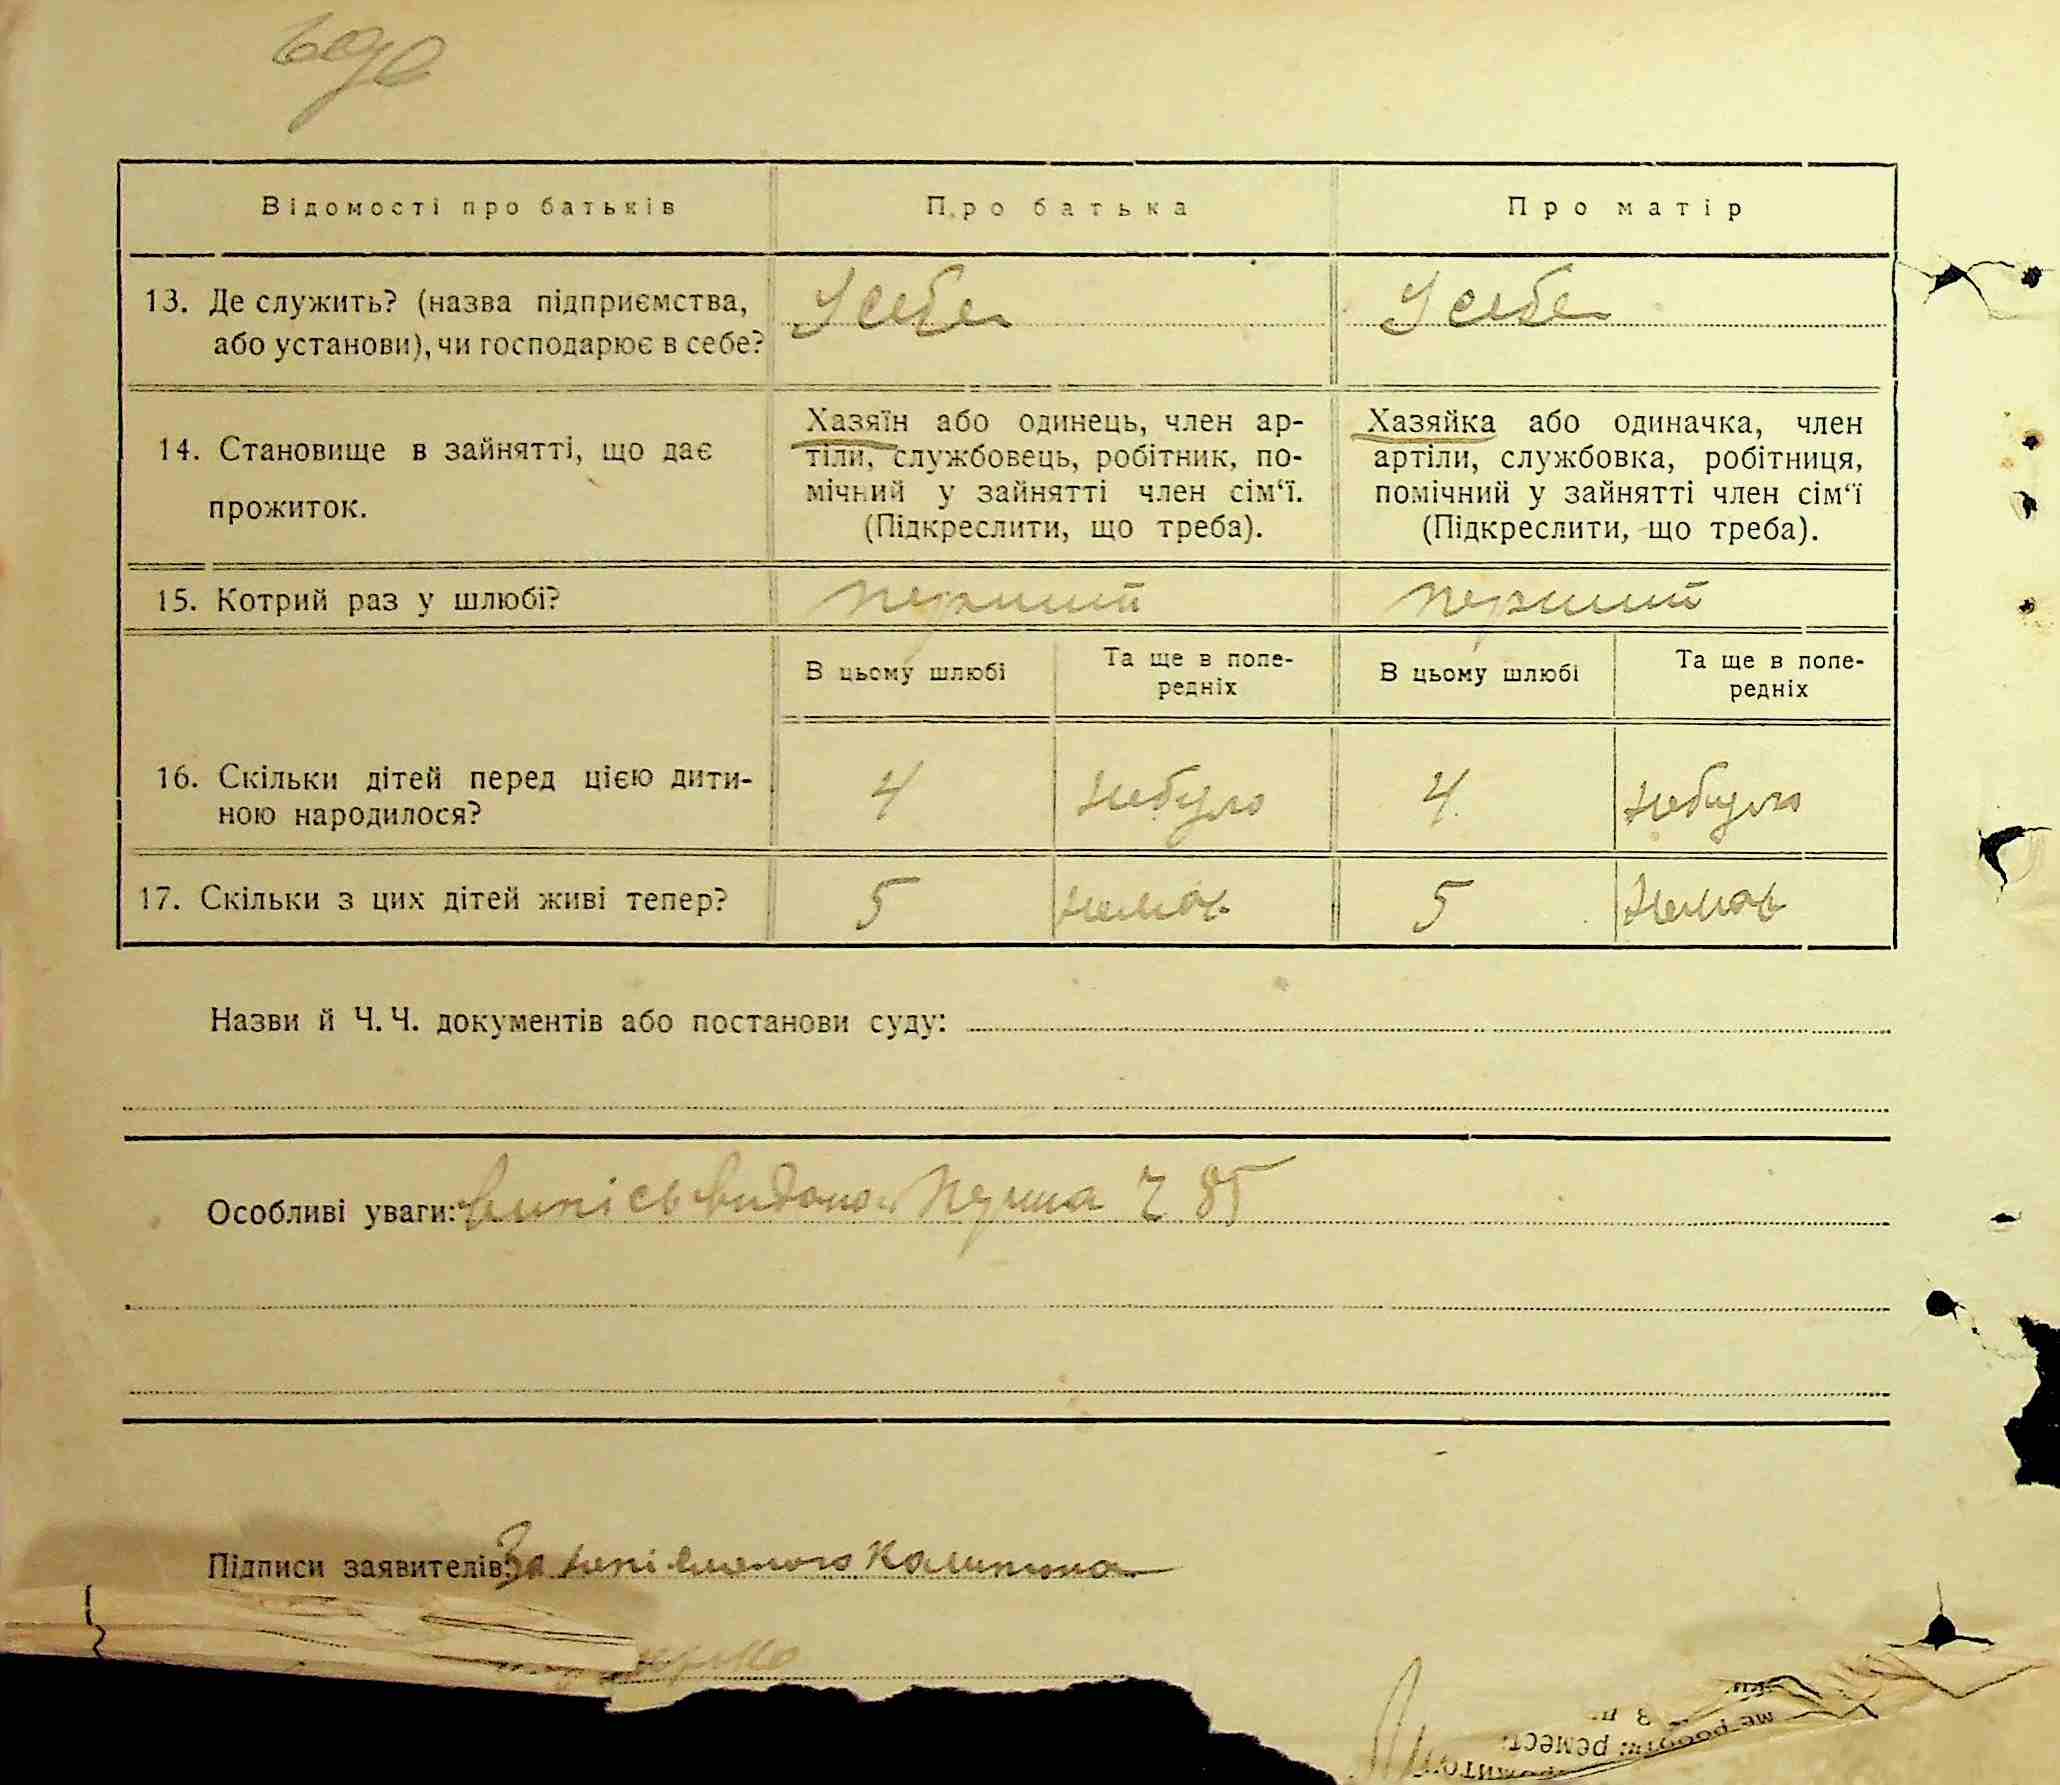 Відомості про батьків Про батька Про матір
13. Де служить? (назва підприємства, У себе У себе
або установи), чи господарює в себе?
Хазяїн або одинець, член ар- Хазяйка або одиначка, член
14. Становище в зайнятті, що дає тіли, службовець, робітник, по- артіли, службовка, робітниця,
мічний у зайнятті член сім‘ї. помічний у зайнятті член сім‘ї
прожиток. (Підкреслити, що треба). (Підкреслити, що треба).
15. Котрий раз у шлюбі? перший перший
В цьому шлюбі Та ще в попе- В цьому шлюбі Та ще в попе-
редніх редніх
16. Скільки дітей перед цією дити- 4 небуло 4 небуло
ною народилося?
17. Скільки з цих дітей живі тепер? 5 немає 5 немає
Назви й Ч. Ч. документів або постанови суду:
Особливі уваги: Випісь видано Перша Ч 85
Підписи заявителів: За